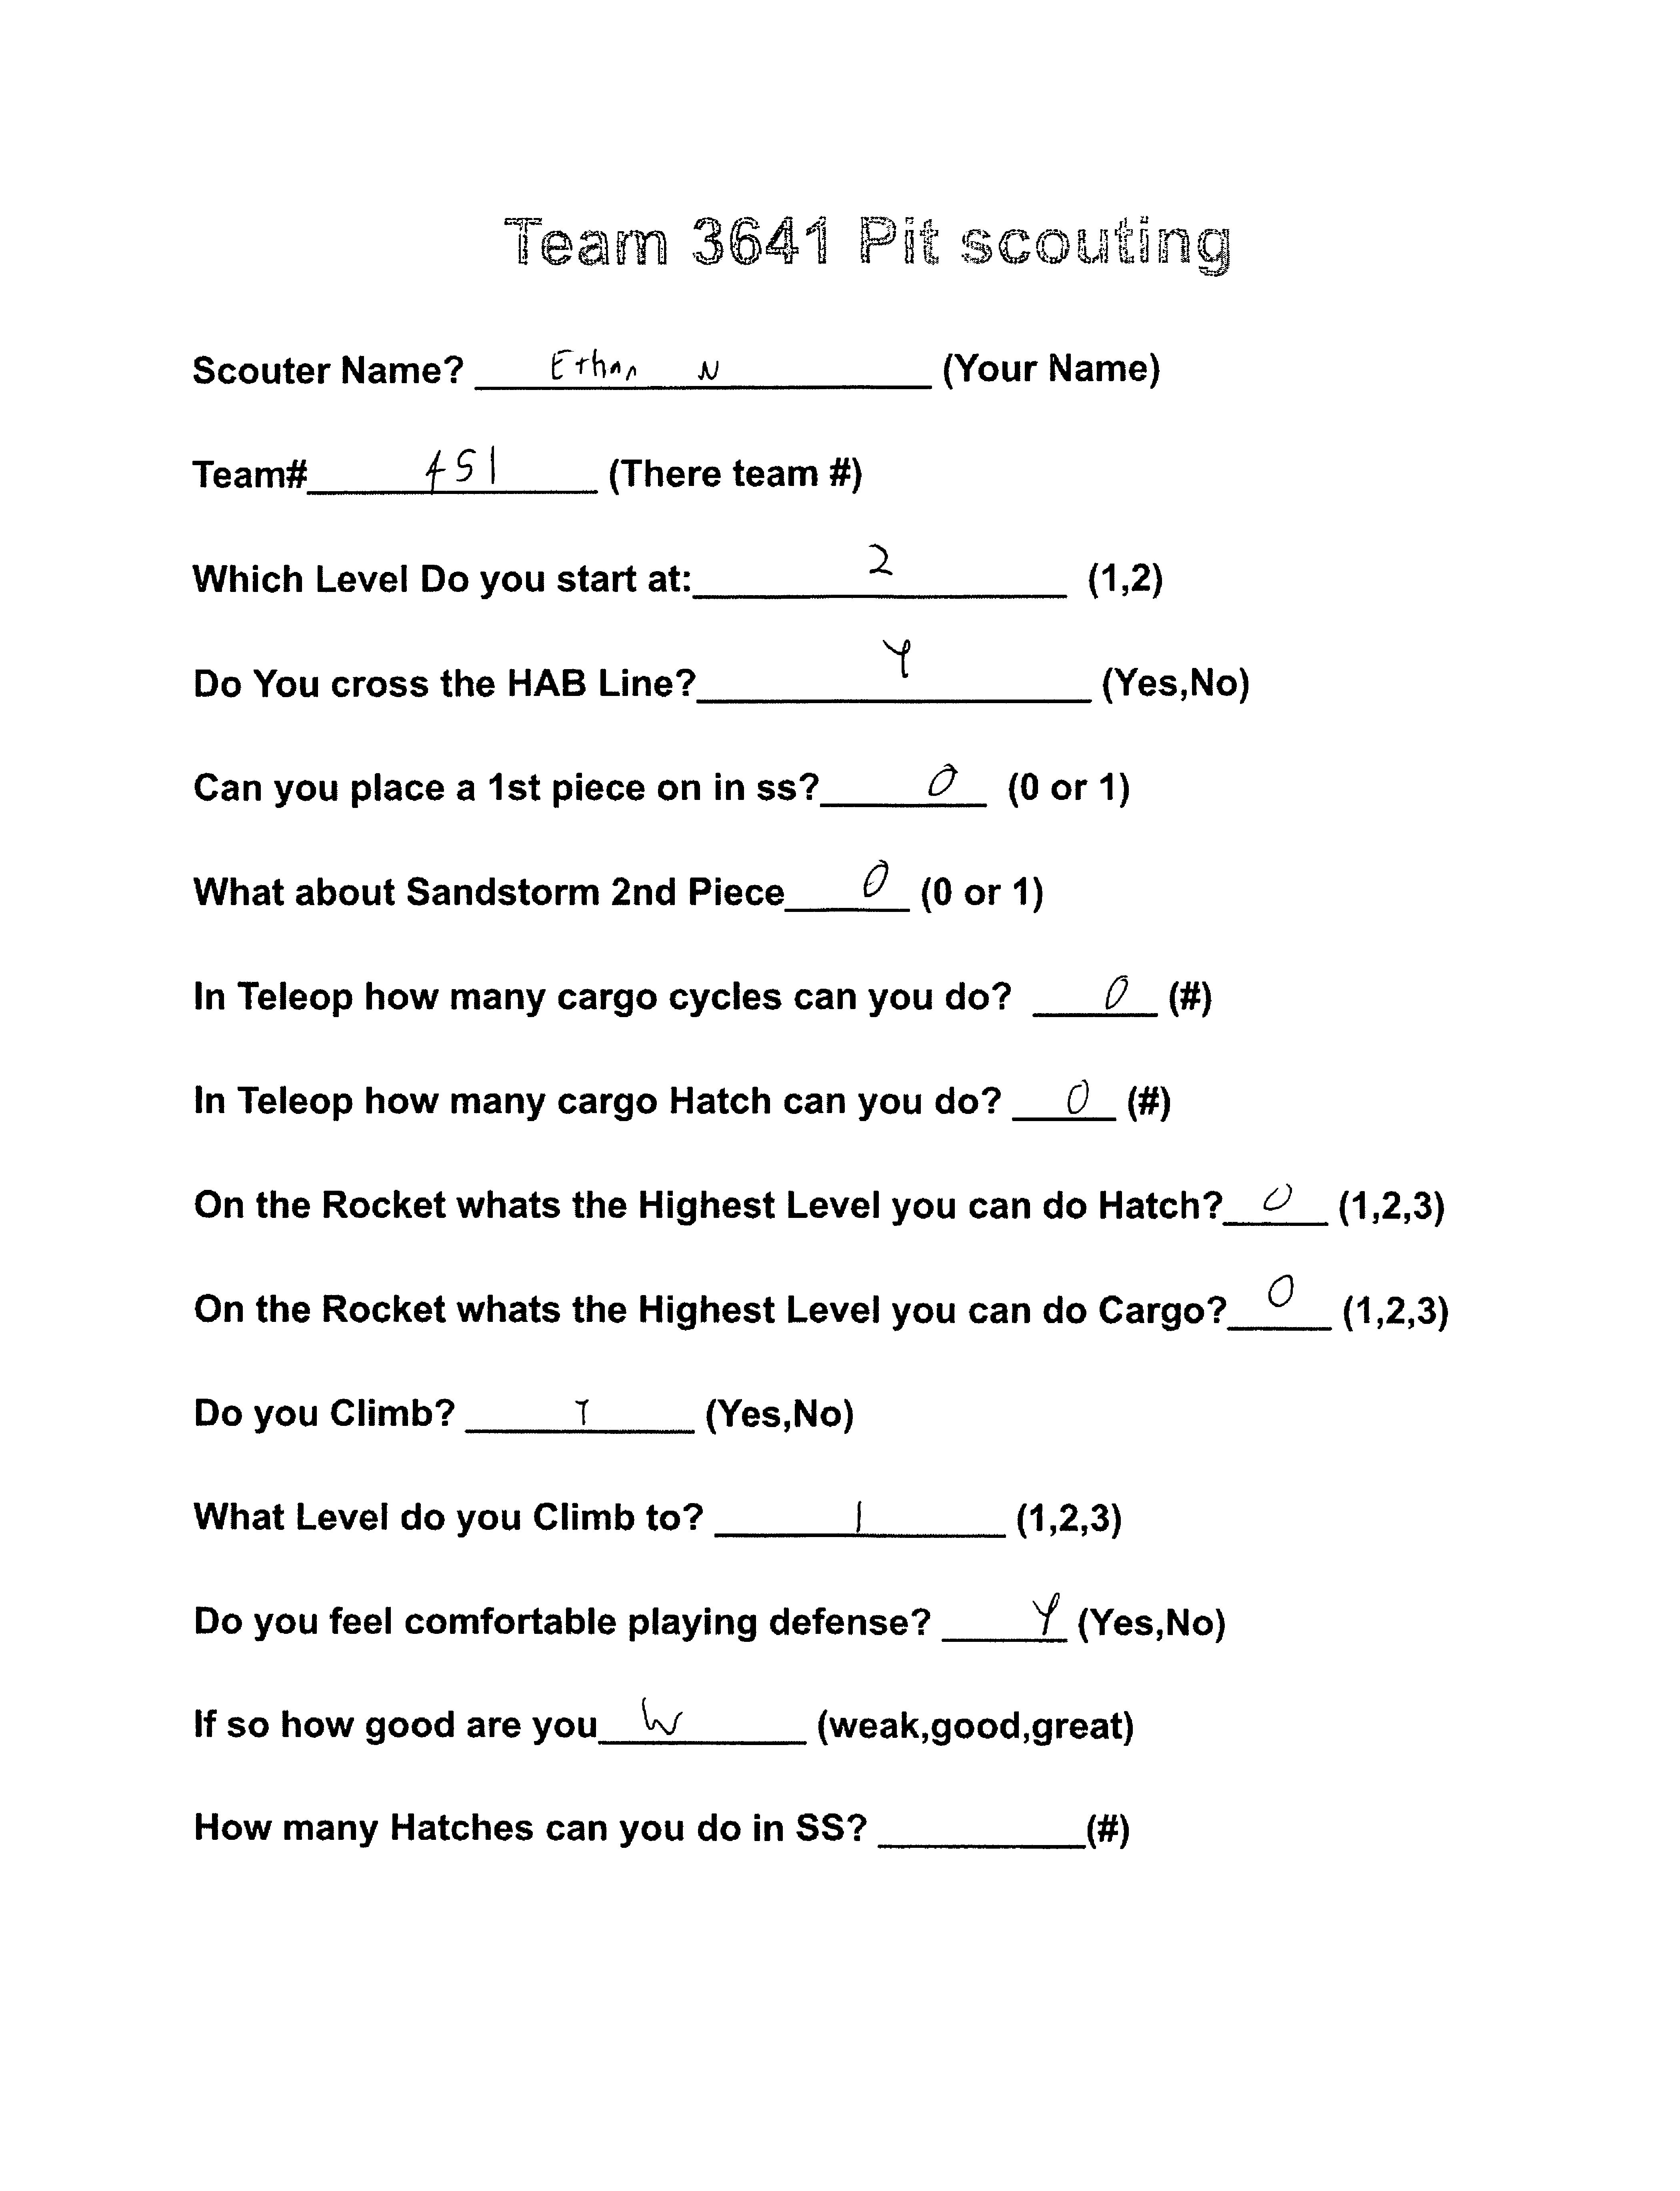 Team 3641 Pit scouting
Scouter Name? Ethan N (Your Name)
Team# 451 (There team #)
Which Level Do you start at: 2 (1,2)
Do You cross the HAB Line? Y (Yes,No)
Can you place a 1st piece on in ss? 0 (0 or 1)
What about Sandstorm 2nd Piece 0 (0 or 1)
In Teleop how many cargo cycles can you do? 0 (#)
In Teleop how many cargo Hatch can you do? 0 (#)
On the Rocket whats the Highest Level you can do Hatch? 0 (1,2,3)
On the Rocket whats the Highest Level you can do Cargo? 0 (1,2,3)
Do you Climb? Y (Yes,No)
What Level do you Climb to? 1 (1,2,3)
Do you feel comfortable playing defense? Y (Yes,No)
If so how good are you W (weak,good,great)
How many Hatches can you do in SS? (#)